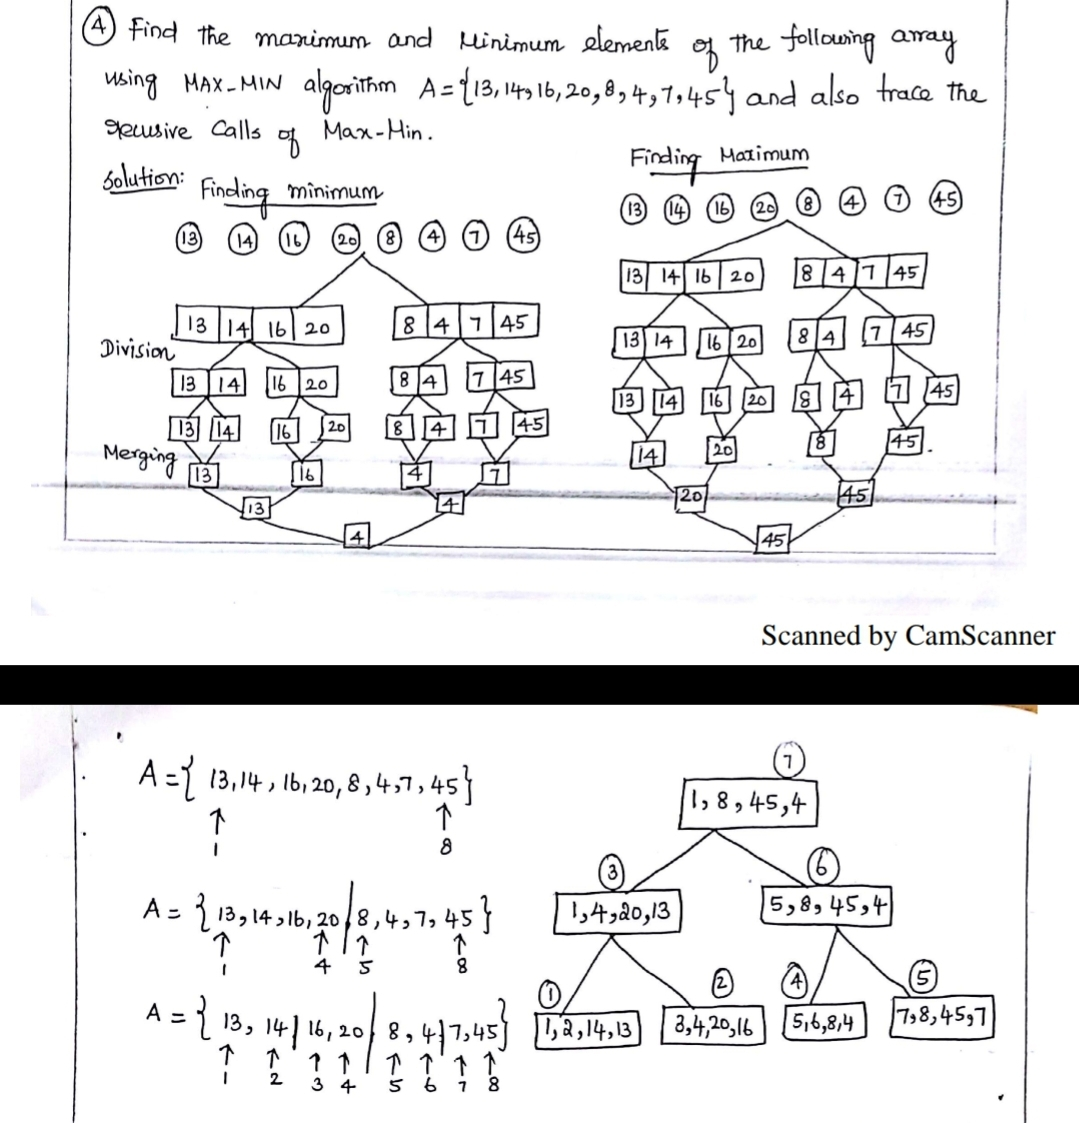 ④ Find the maximum and Minimum elements of the following array
using MAX-MIN algorithm A={13,14,16,20,8,4,7,45} and also trace the
recusive Calls of Max-Min.
Solution: Finding minimum
13 14 16 20 8 4 7 45
13 14 16 20 8 4 7 45
Division
13 14 16 20 8 4 7 45
13 14 16 20 8 4 7 45
Merging
13 16 4 7
13 4
4
Finding Maximum
13 14 16 20 8 4 7 45
13 14 16 20 8 4 7 45
13 14 16 20 8 4 7 45
13 14 16 20 8 4 7 45
14 20 8 45.
20 45
45
Scanned by CamScanner
A={ 13,14, 16,20, 8,4,7, 45}
↑ ↑
1 8
A = { 13, 14, 16, 20 / 8, 4, 7, 45 }
↑ ↑ ↑ ↑
1 4 5 8
A = { 13, 14 | 16, 20 | 8, 4 | 7,45 }
↑ ↑ ↑ ↑ ↑ ↑ ↑ ↑
1 2 3 4 5 6 7 8
⑦
1, 8, 45, 4
③ ⑥
1,4,20,13 5,8, 45,4
① ② ④ ⑤
1,2,14,13 3,4,20,16 5,6,8,4 7,8,45,7